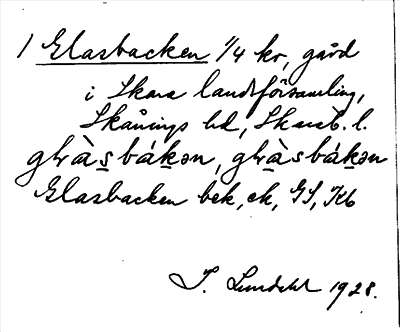 1 Glasbacken 1/4 kr, gård
i Skara landsförsamling,
Skånings hd, Skarab. l.
glàsbákən, glàsbákən
Glasbacken bek, ek, GS, Kb
J. Lundahl 1928.